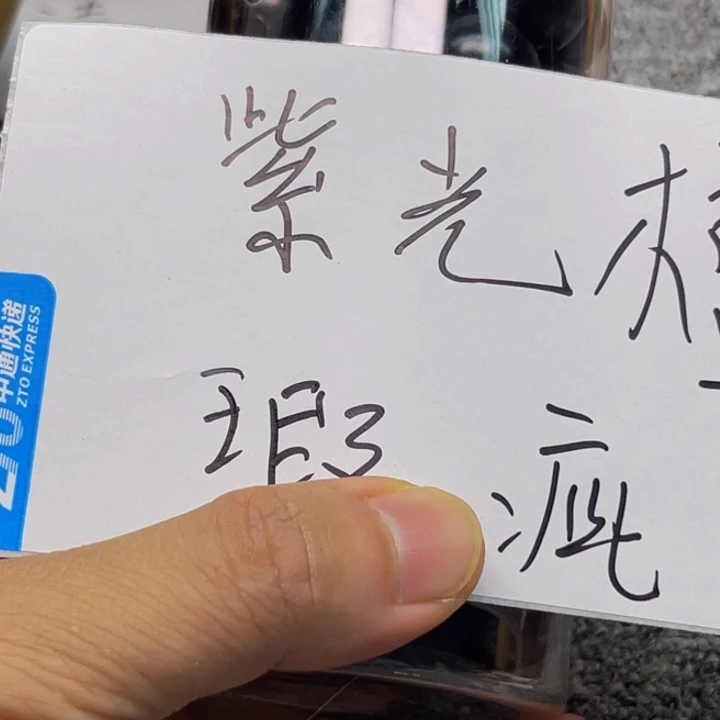 紫光檀
瑕疵
中通快递
ZTO EXPRESS
ZTO